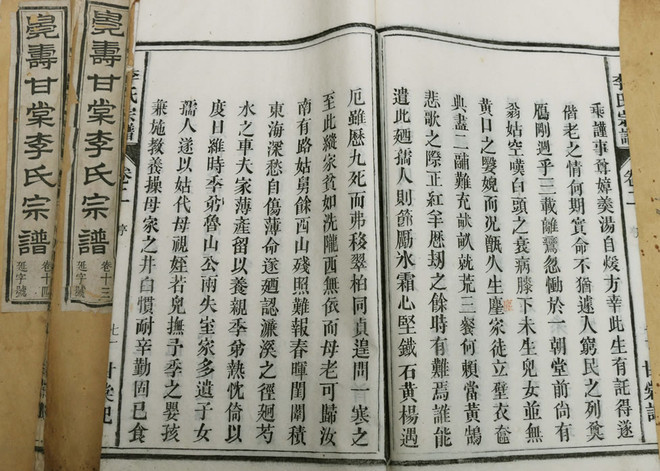 李氏宗譜
卷二
甘棠記
乘謹事尊嫜羹湯自煖方幸此生有託得遂
偕老之情何期實命不猶遽入窮民之列奠
鴈剛過乎三載離鸞怨慟於一朝堂前尚有
翁姑空嘆白頭之衰病膝下未生兒女並無
黃口之嬰婗而況甑久生塵家徒立壁衣奩
典盡二鬴難充畎畝就荒三餐何賴當黃鵠
悲歌之際正紅羊歷刼之餘時有難焉誰能
遣此廼孺人則節勵氷霜心堅鐵石黃楊遇
厄雖歷九死而弗移翠柏同貞遑問一寒之
至此縱家貧如洗隴西無依而母老可歸汝
南有路姑舅餘西山殘照難報春暉閨閫積
東海深愁自傷薄命遂廻認濂溪之徑廻芍
水之車夫家薄產留以養親季弟熱忱倚以
度日維時季弟魯山公甫失室家多遺子女
孺人遂以姑代母視姪若兒撫予季之嬰孩
兼施教養操母家之井臼慣耐辛勤固已食
李氏宗譜
卷二
甘棠記
壽甘棠李氏宗譜
卷十三
延字號
壽甘棠李氏宗譜
卷十四
延字號